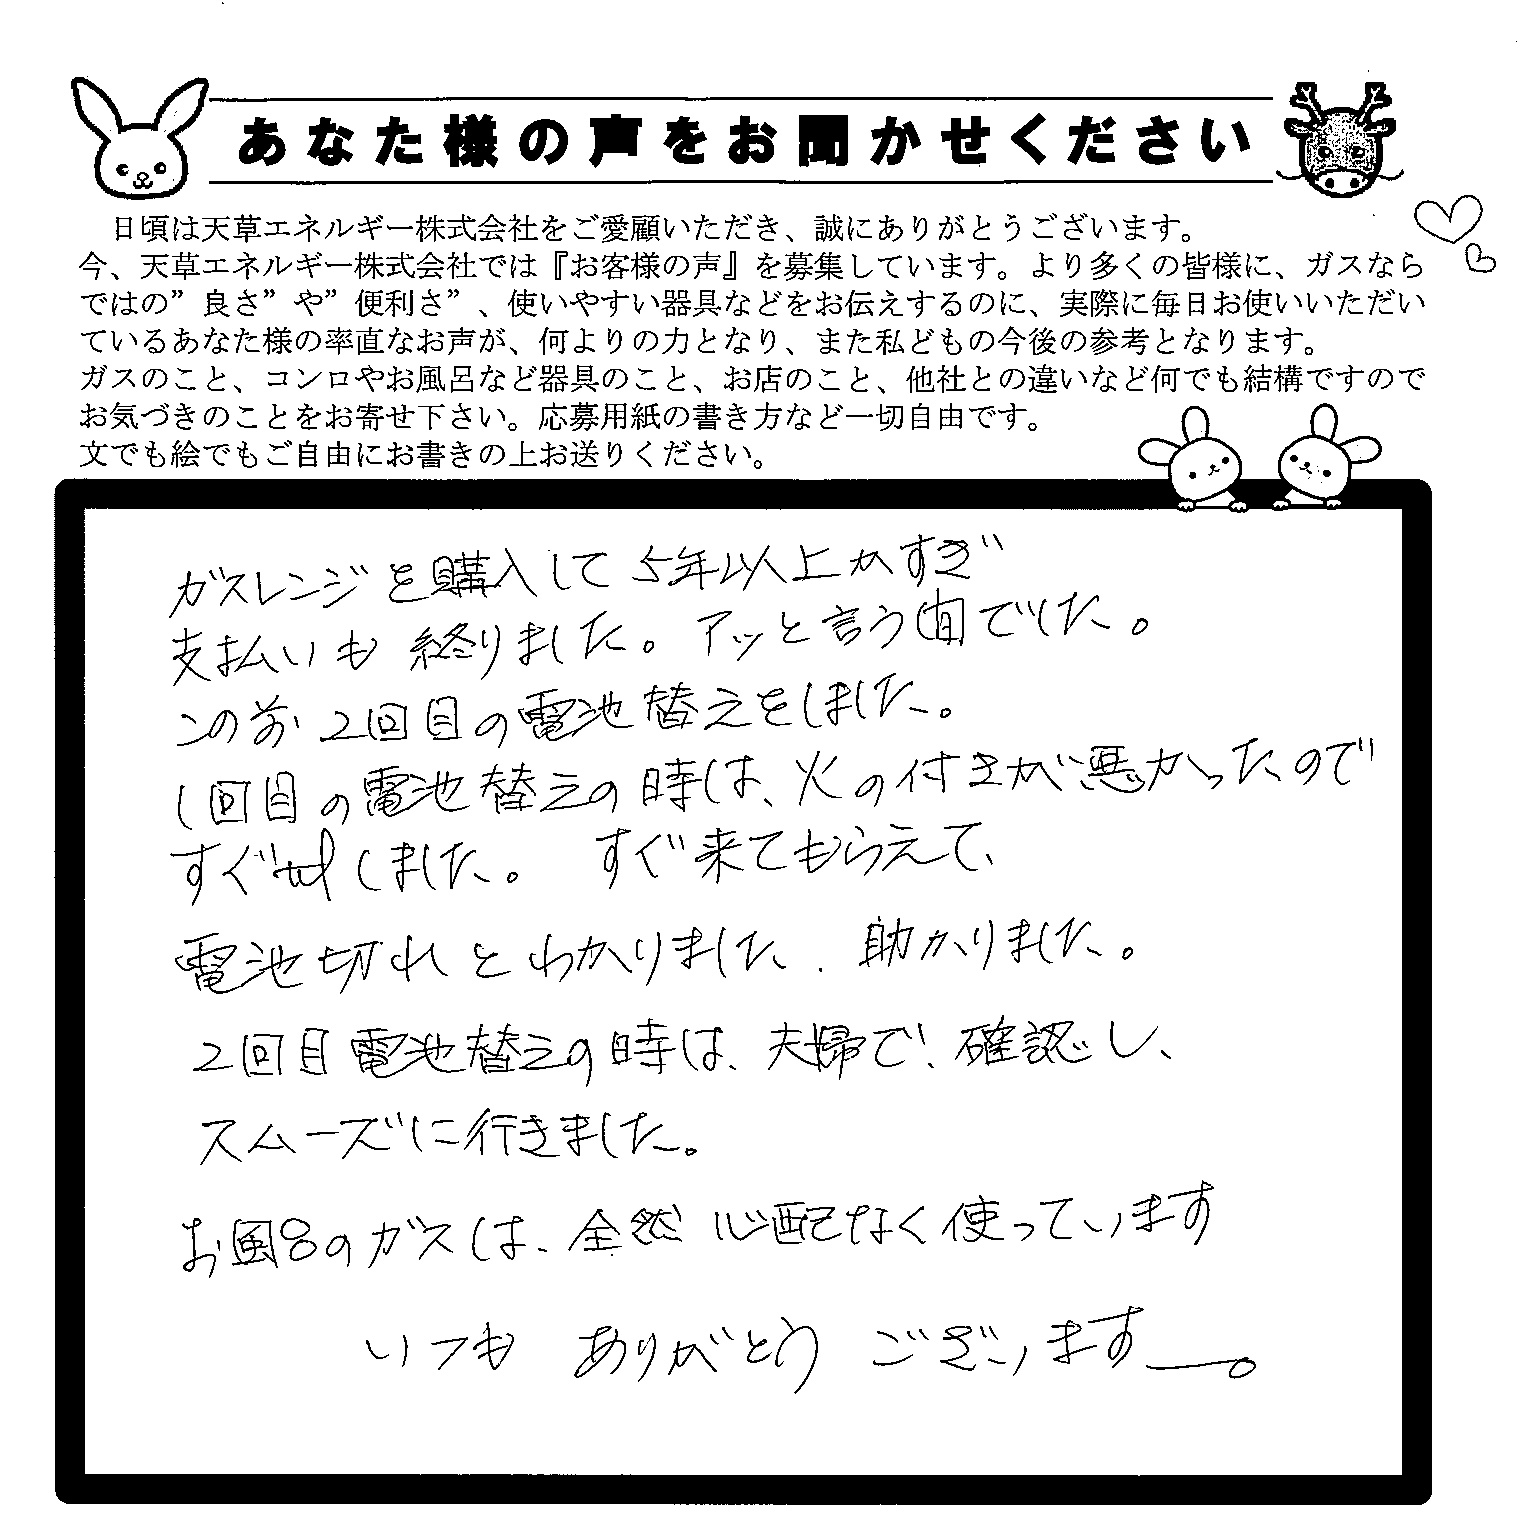 あなた様の声をお聞かせください
日頃は天草エネルギー株式会社をご愛顧いただき、誠にありがとうございます。
今、天草エネルギー株式会社では『お客様の声』を募集しています。より多くの皆様に、ガスなら
ではの”良さ”や”便利さ”、使いやすい器具などをお伝えするのに、実際に毎日お使いいただい
ているあなた様の率直なお声が、何よりの力となり、また私どもの今後の参考となります。
ガスのこと、コンロやお風呂など器具のこと、お店のこと、他社との違いなど何でも結構ですので
お気づきのことをお寄せ下さい。応募用紙の書き方など一切自由です。
文でも絵でもご自由にお書きの上お送りください。
ガスレンジを購入して5年以上がすぎ
支払いも終りました。アッと言う間でした。
この前2回目の電池替えをしました。
1回目の電池替えの時は、火の付きが悪かったので
すぐtelしました。すぐ来てもらえて、
電池切れとわかりました。助かりました。
2回目電池替えの時は、夫婦で、確認し、
スムーズに行きました。
お風呂のガスは、全然心配なく使っています
いつもありがとうございます。